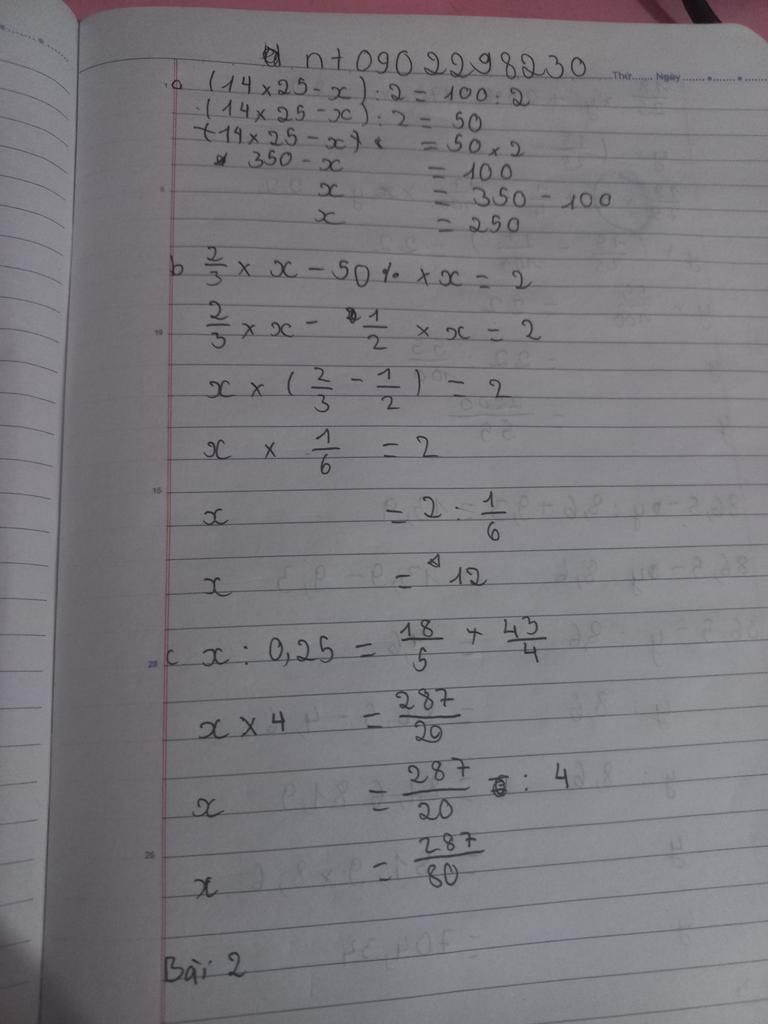 nt 0902298230
Thứ....... Ngày
a (14 x 25 - x) : 2 = 100 : 2
(14 x 25 - x) : 2 = 50
(14 x 25 - x) = 50 x 2
350 - x = 100
x = 350 - 100
x = 250
b 2/3 x x - 50% x x = 2
2/3 x x - 1/2 x x = 2
x x (2/3 - 1/2) = 2
x x 1/6 = 2
x = 2 : 1/6
x = 12
c x : 0,25 = 18/5 + 43/4
x x 4 = 287/20
x = 287/20 : 4
x = 287/80
Bài 2